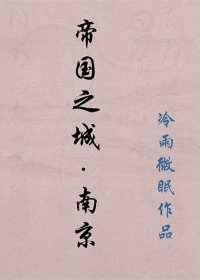 帝国之城·南京
冷雨微眠作品